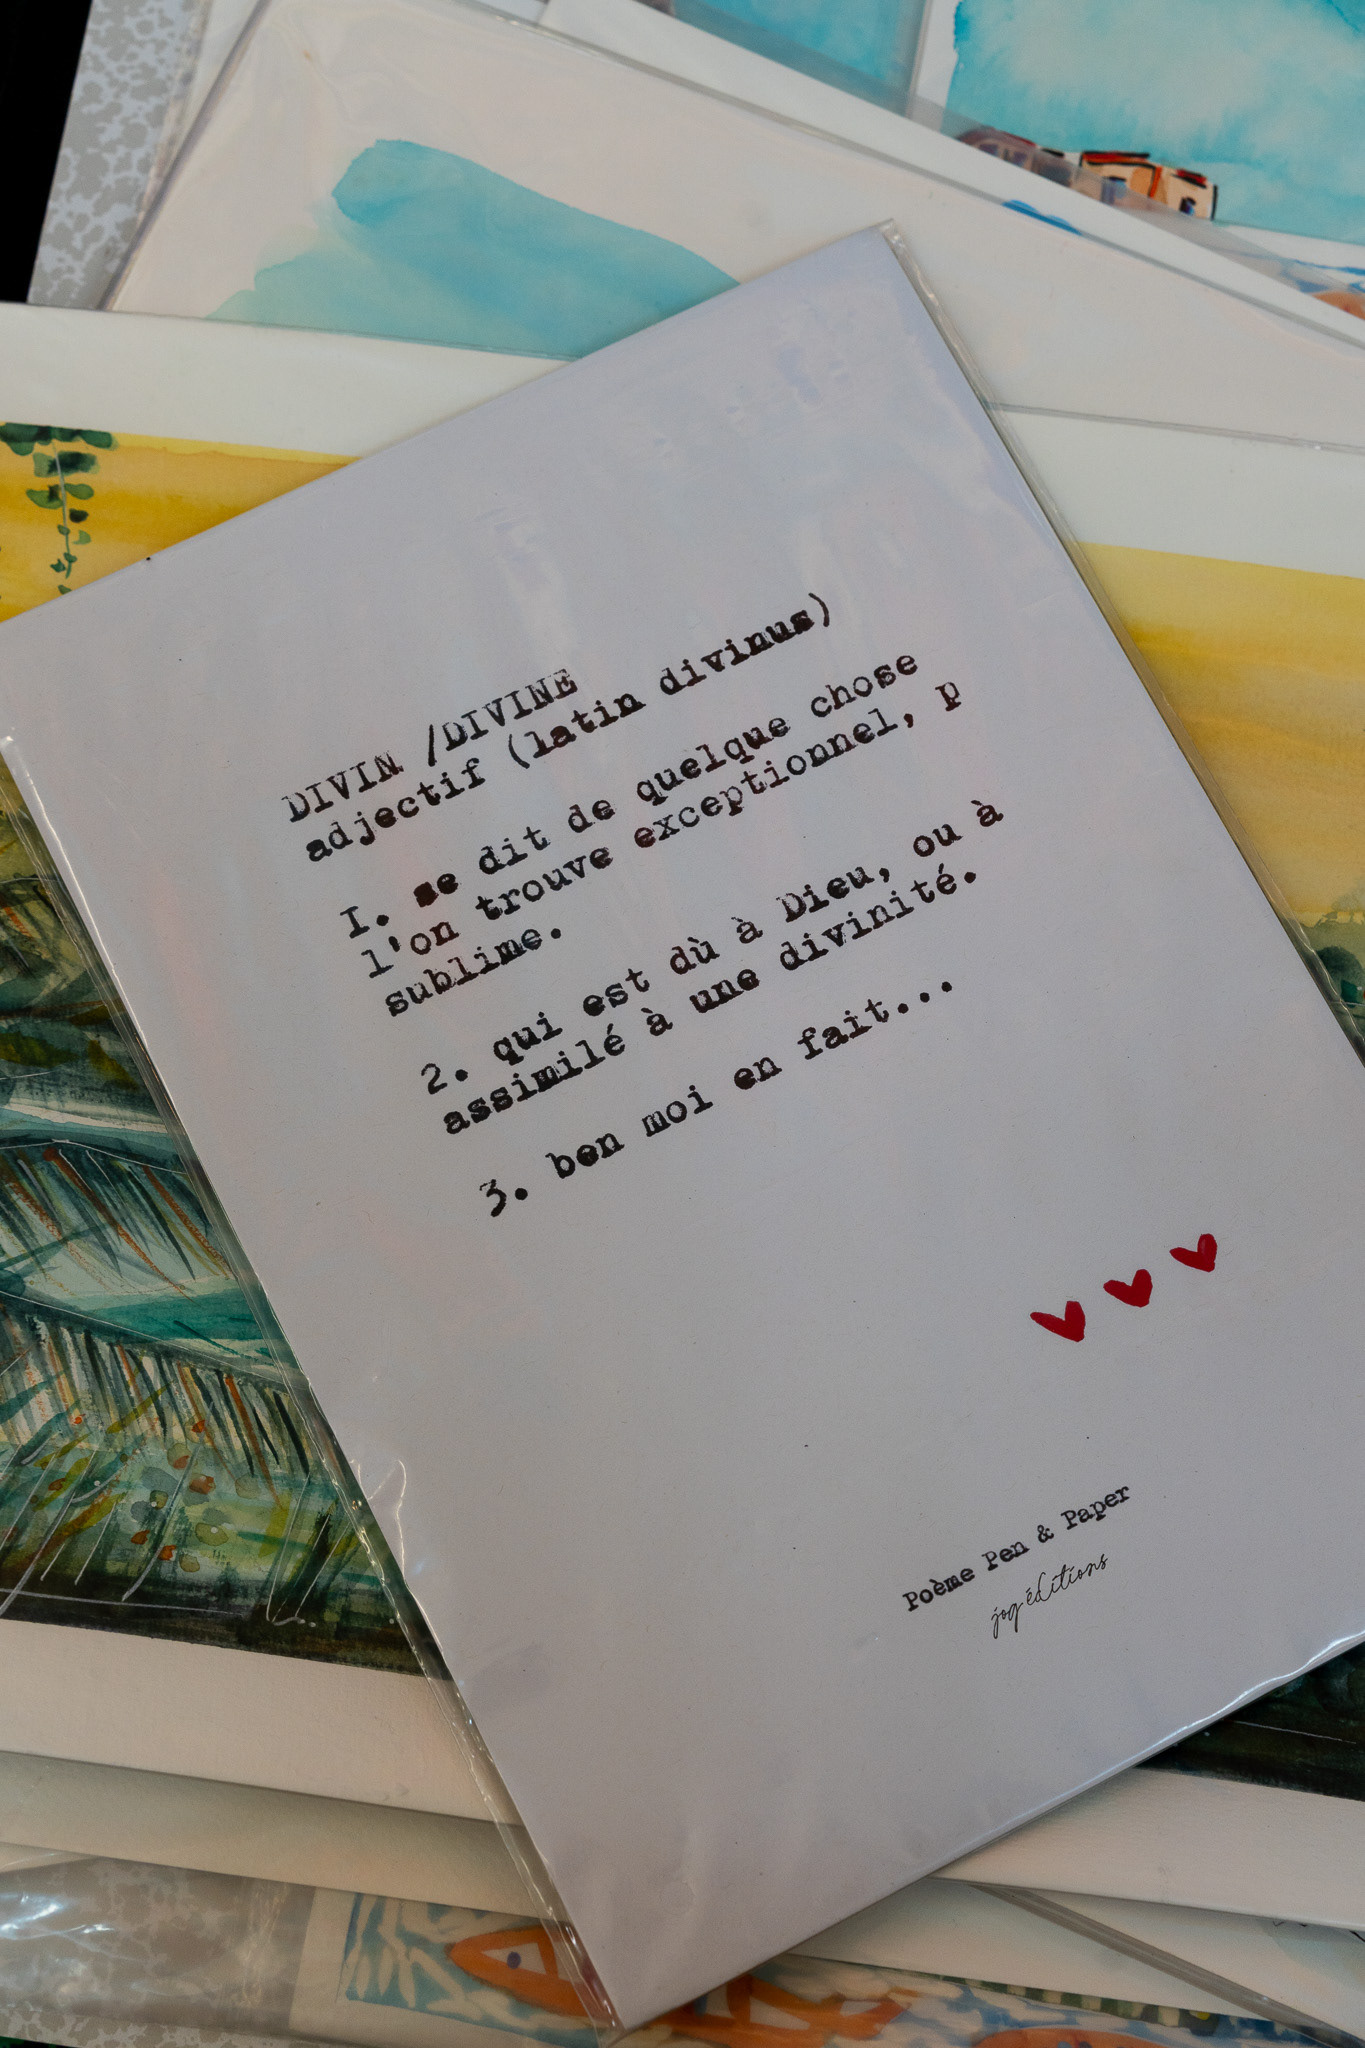 DIVIN /DIVINE
adjectif (latin divinus)
I. se dit de quelque chose
l'on trouve exceptionnel, p
sublime.
2. qui est dù à Dieu, ou à
assimilé à une divinité.
3. ben moi en fait...
Poème Pen & Paper
jog éditions